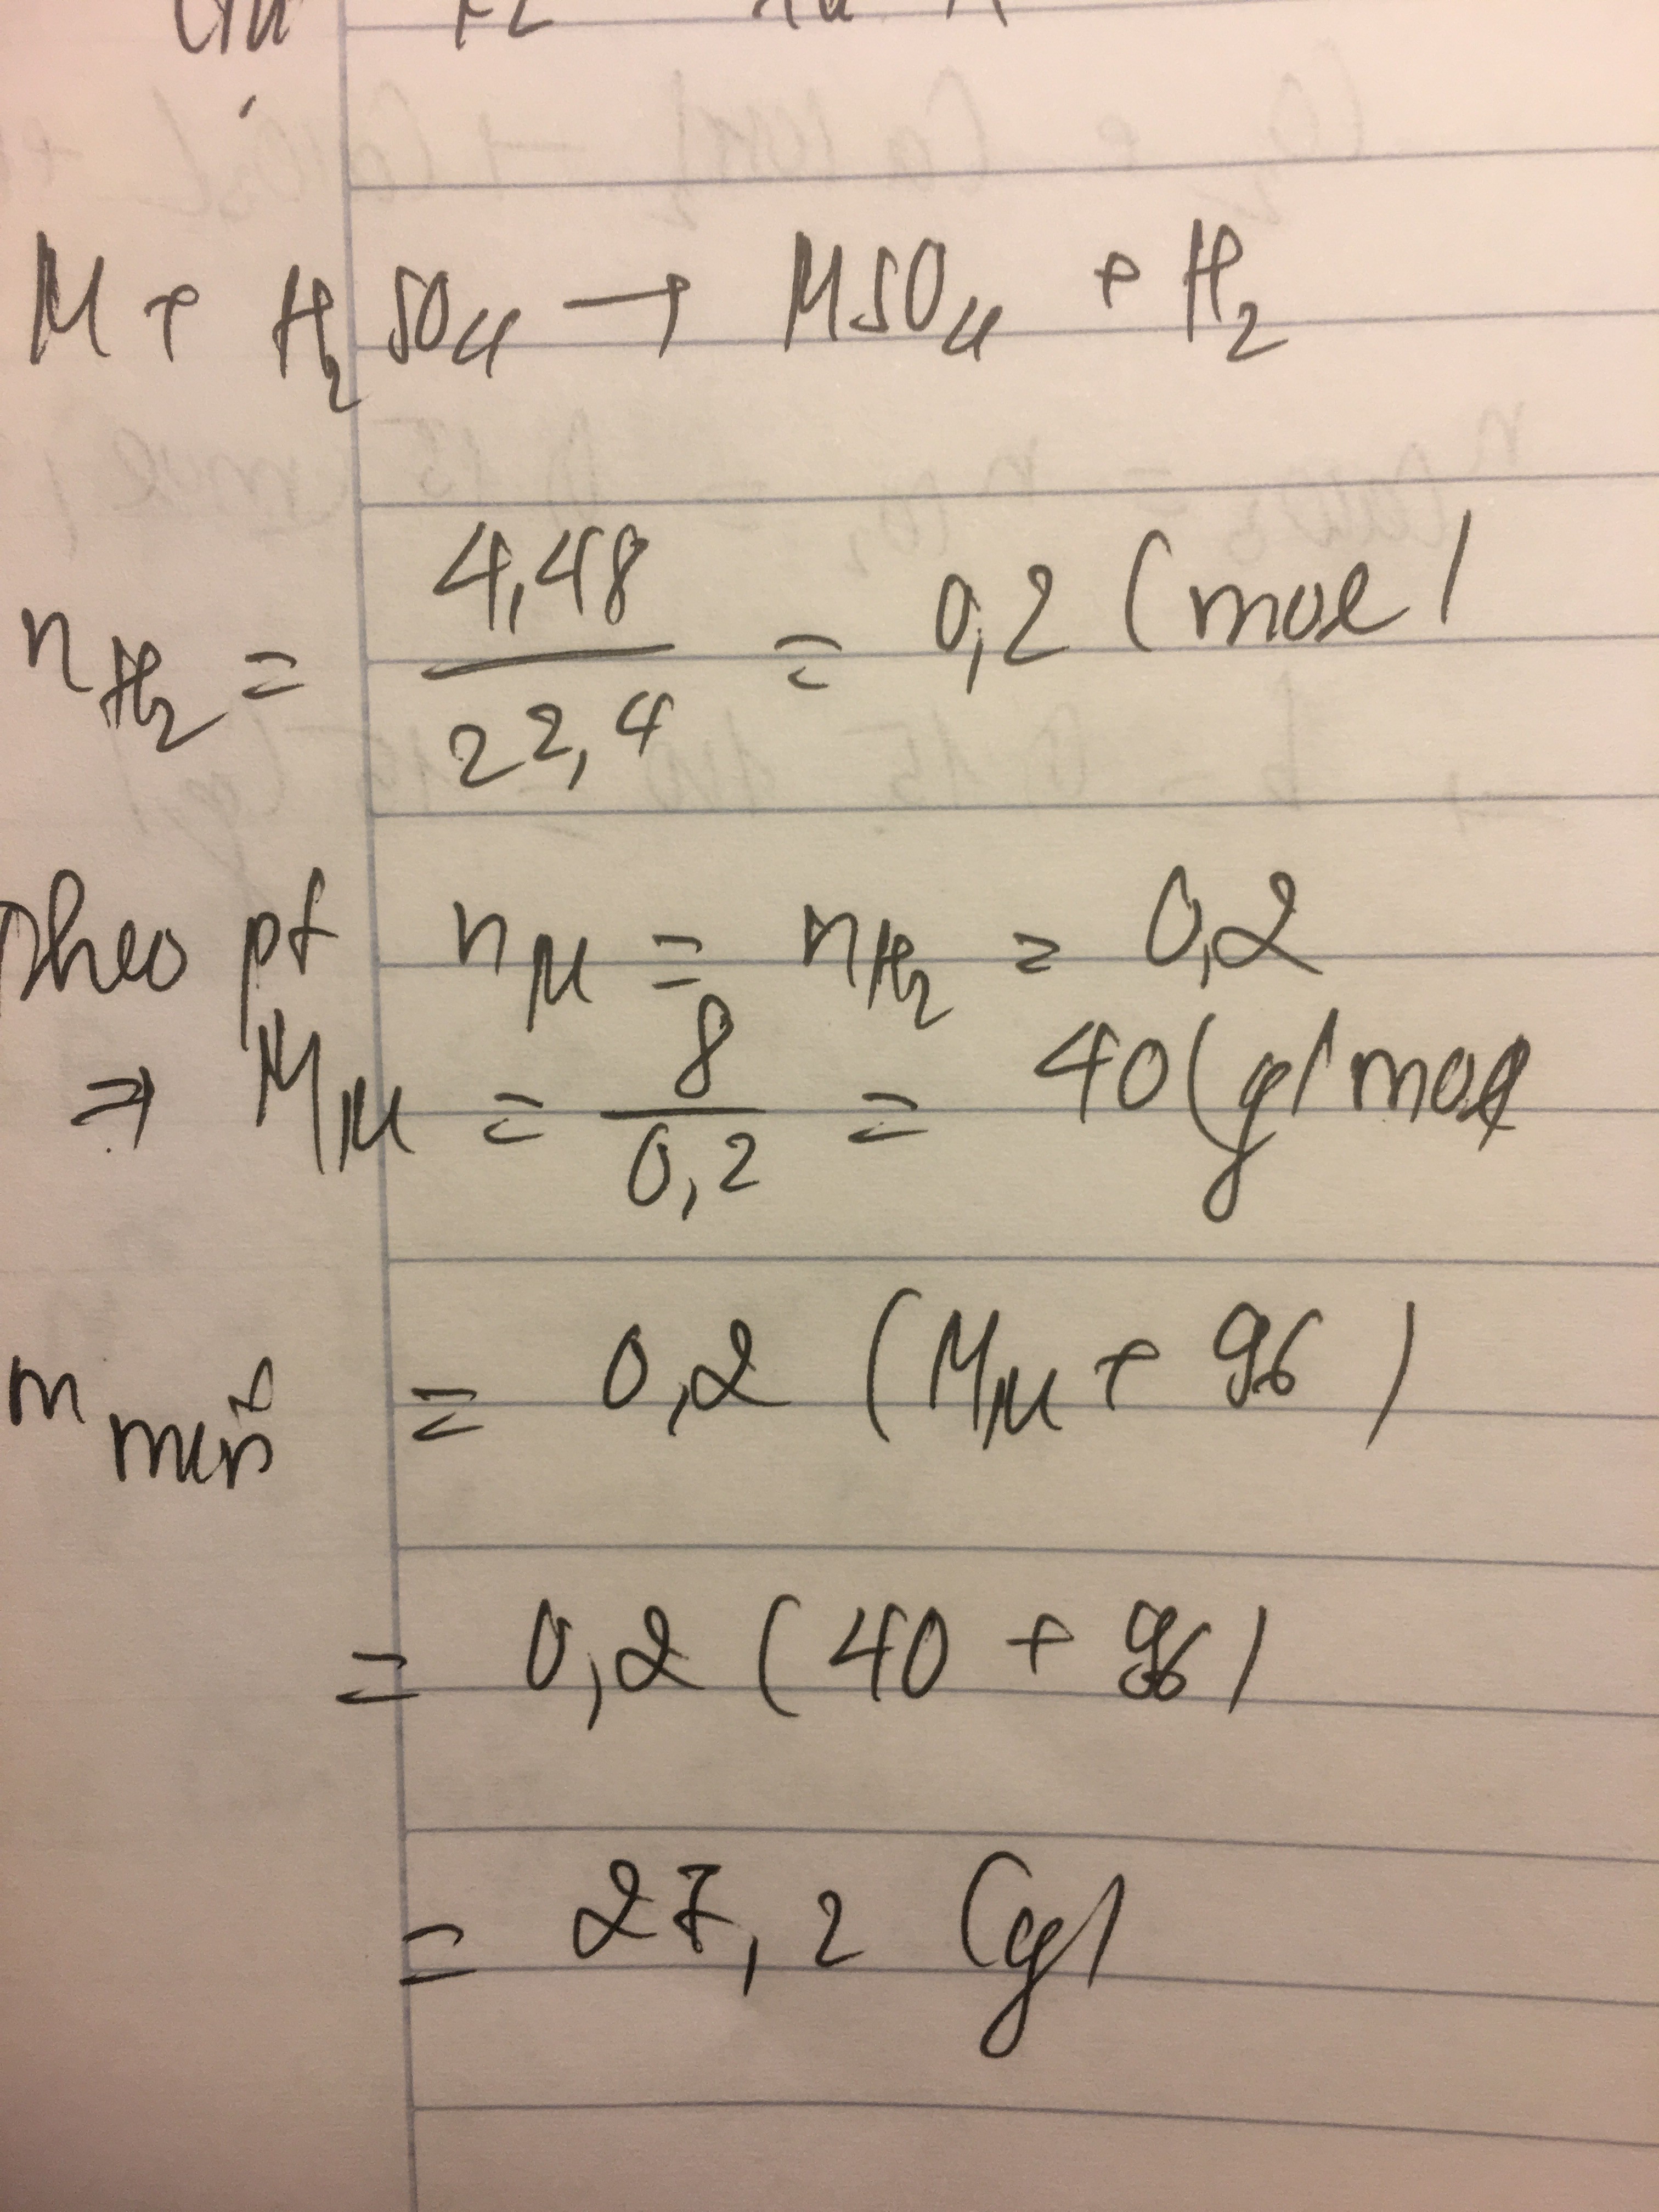 M + H₂SO₄ → MSO₄ + H₂
n_H₂ = 4,48 / 22,4 = 0,2 (mol)
theo pt n_M = n_H₂ = 0,2
⇒ M_M = 8 / 0,2 = 40 (g/mol
m muối = 0,2 (M_M + 96)
= 0,2 (40 + 96)
= 27,2 (g)